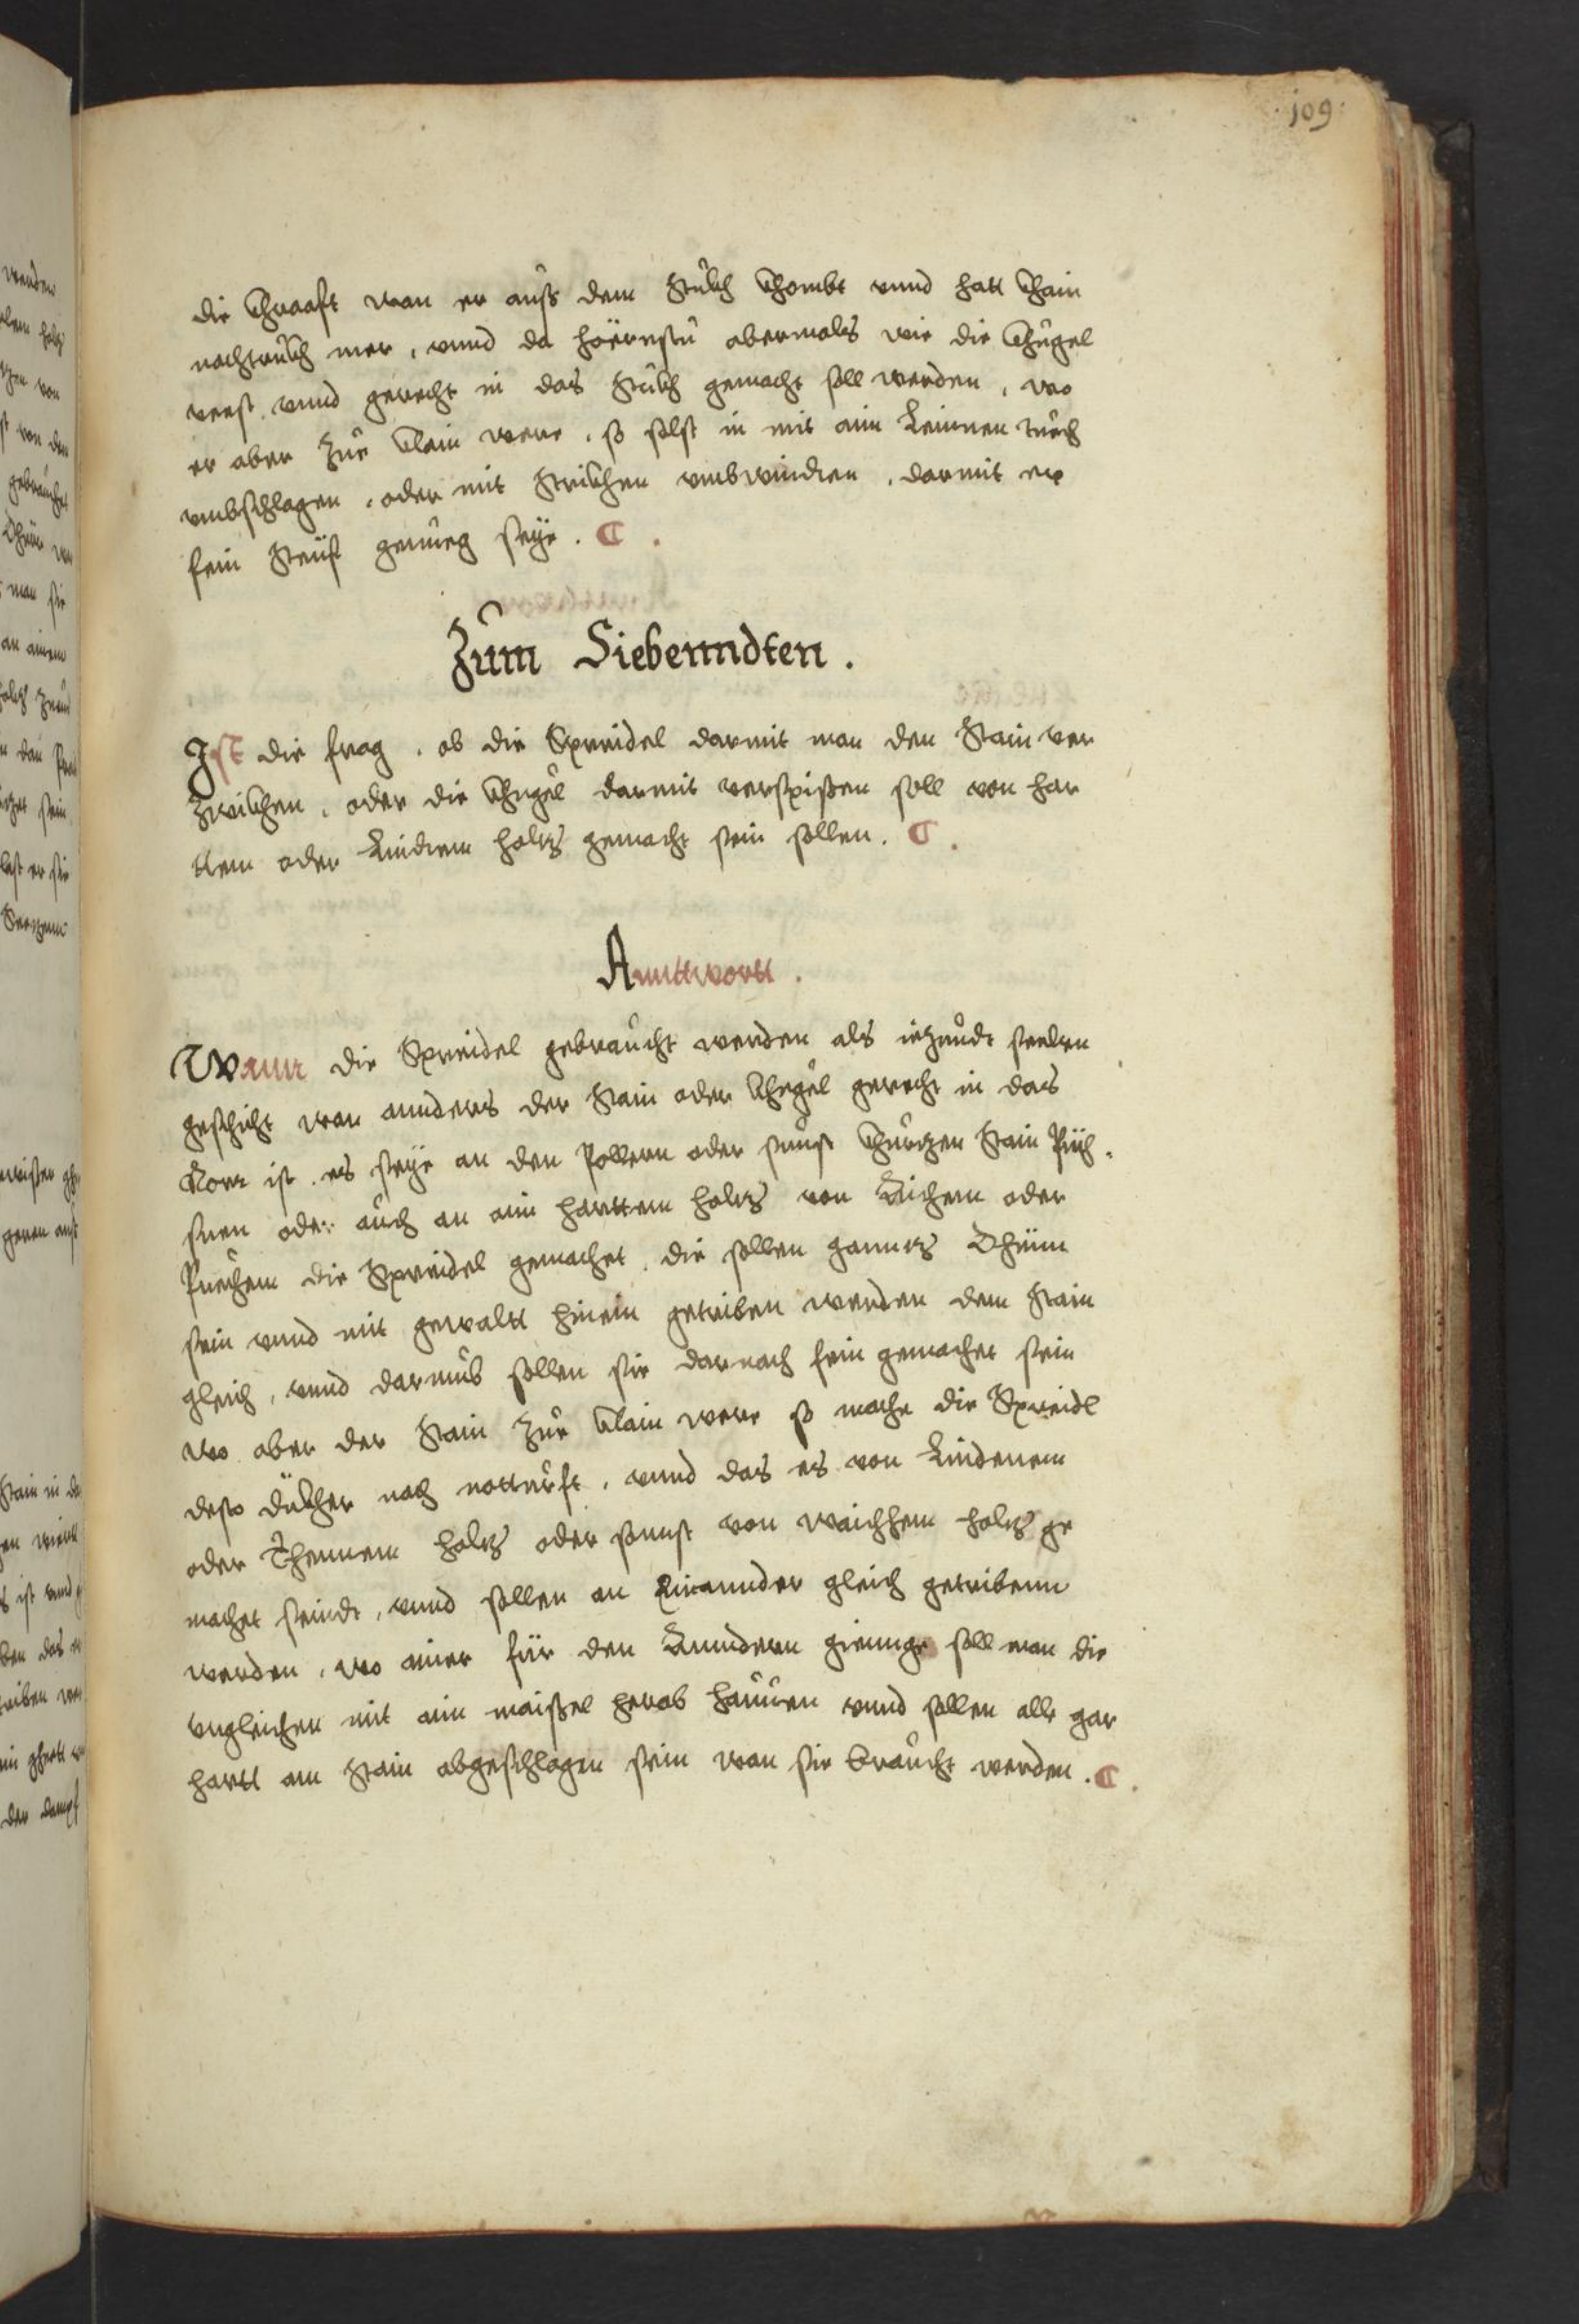 109
die Chraaft wan er auß dem Stukh khombt vnnd hatt khain
nachtrukh mer, vnnd da höernstu abermals wie die Chugel
verst vnnd gerecht in das Stukh gemacht soll werden, wo
er aber zue klain were, so solst in mit ain Leinnen tuech
vmbschlagen, oder mit Strikhen vmbwinden, darmit er
fein Steiff genueg seye.
Zum Siebenndten.
Ist die frag, ob die Spreidel darmit man den Stain ver
zwikhen, oder die Chugel darmit verspissen soll von har
ttem oder Lindem holtz gemacht sein sollen.
Anntwortt.
Wann die Spreidel gebraucht werden als iezundt seelten
geschicht wan annders der Stain oder Chugel gerecht in das
Rorr ist. es seye an den Pollern oder sunst Churtzen Stain Püch
sen oder auch an ain harttem holtz von Aichem oder
Puechem die Spreidel gemachet, die sollen ganntz Dhünn
sein vnnd mit gewaltt hinein getriben werden dem Stain
gleich, vnnd darumb sollen sie darnach fein gemachet sein
wo aber der Stain zue klain were so mache die Spreidl
desto dükher nach notturfft, vnnd das es von Lindenem
oder Thennem holtz oder sunst von waichhem holtz ge
machet seindt, vnnd sollen an Einannder gleich getribenn
werden, wo ainer für den Anndern gieunge soll man die
vngleichen mit ain maissel herab hauuen vnnd sollen alle gar
hartt am Stain abgeschlagen sein wan sie braucht werden.